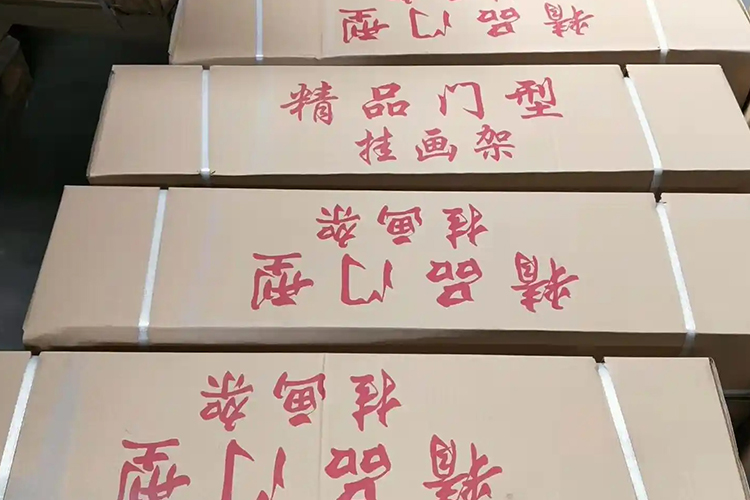 精品门型
精品门型
挂画架
精品门型
挂画架
精品门型
挂画架